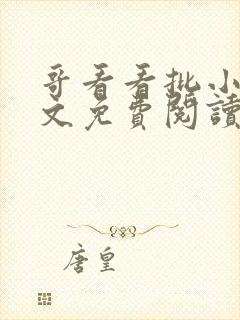 哥看看批小
文免費閱讀
唐皇